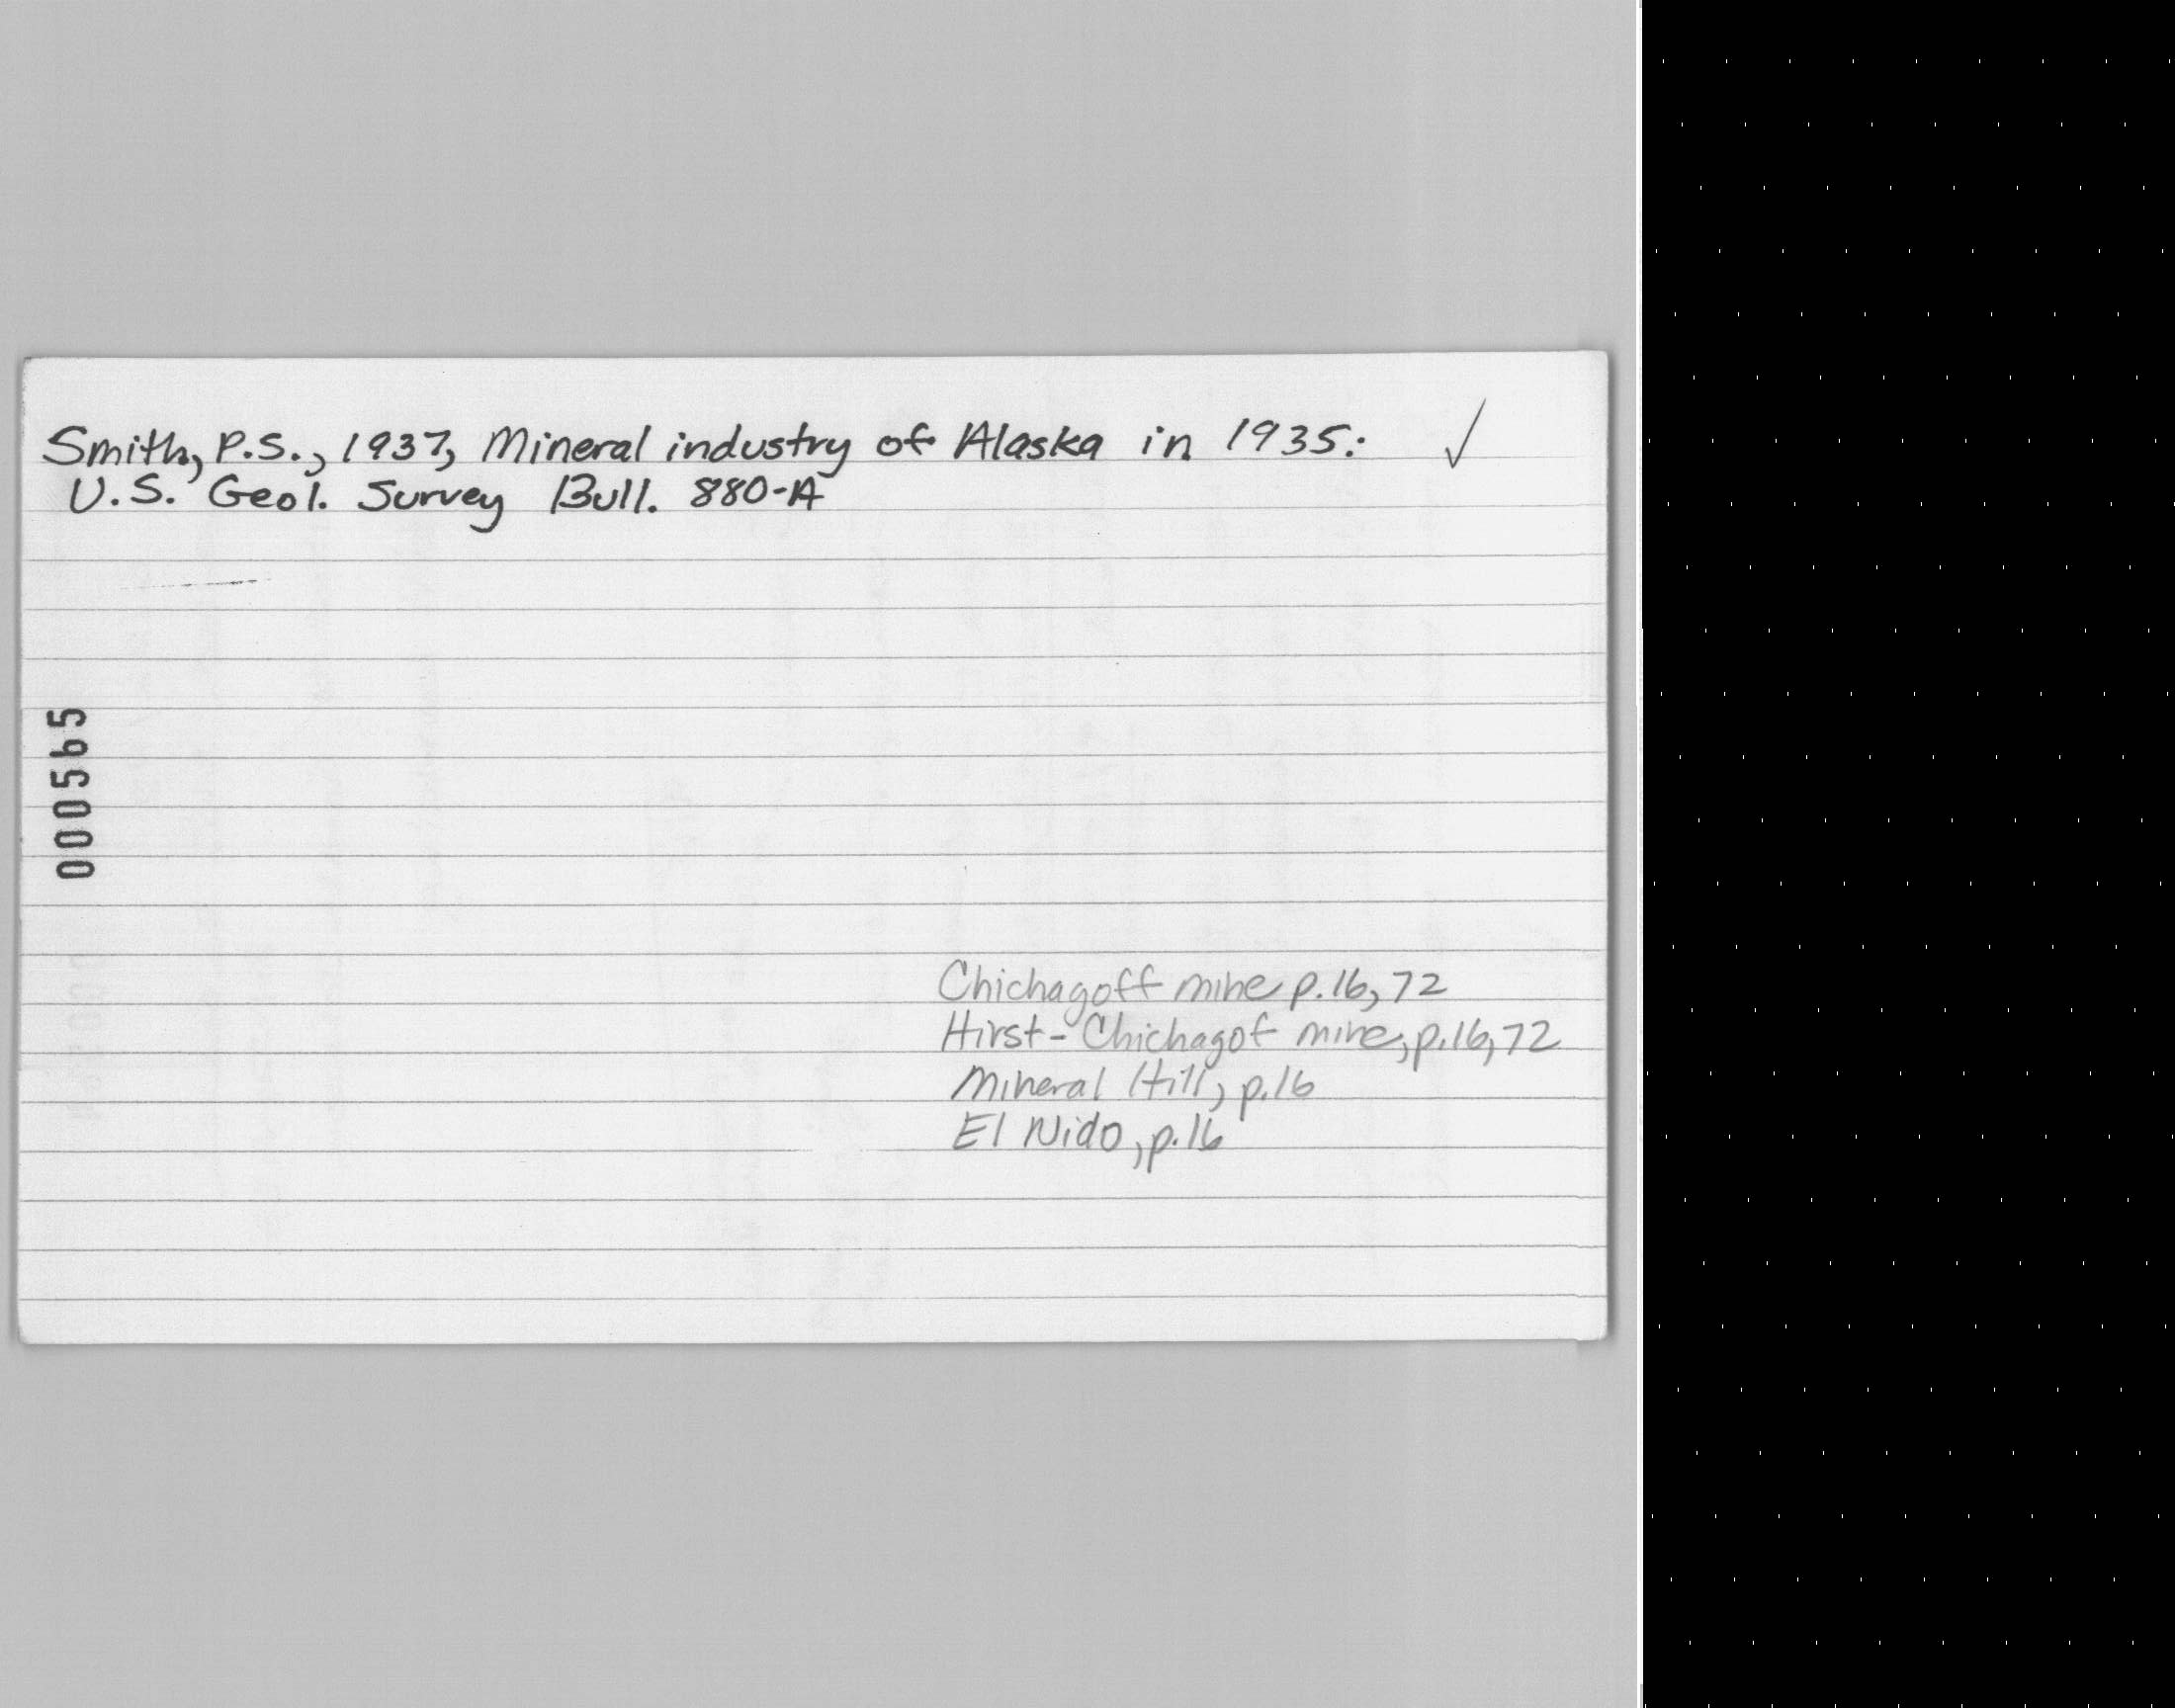 Smith, P.S., 1937, Mineral industry of Alaska in 1935: ✓
U.S. Geol. Survey Bull. 880-A
000565
Chichagoff mine p.16, 72
Hirst-Chichagof mine, p.16, 72
Mineral Hill, p.16
El Nido, p.16